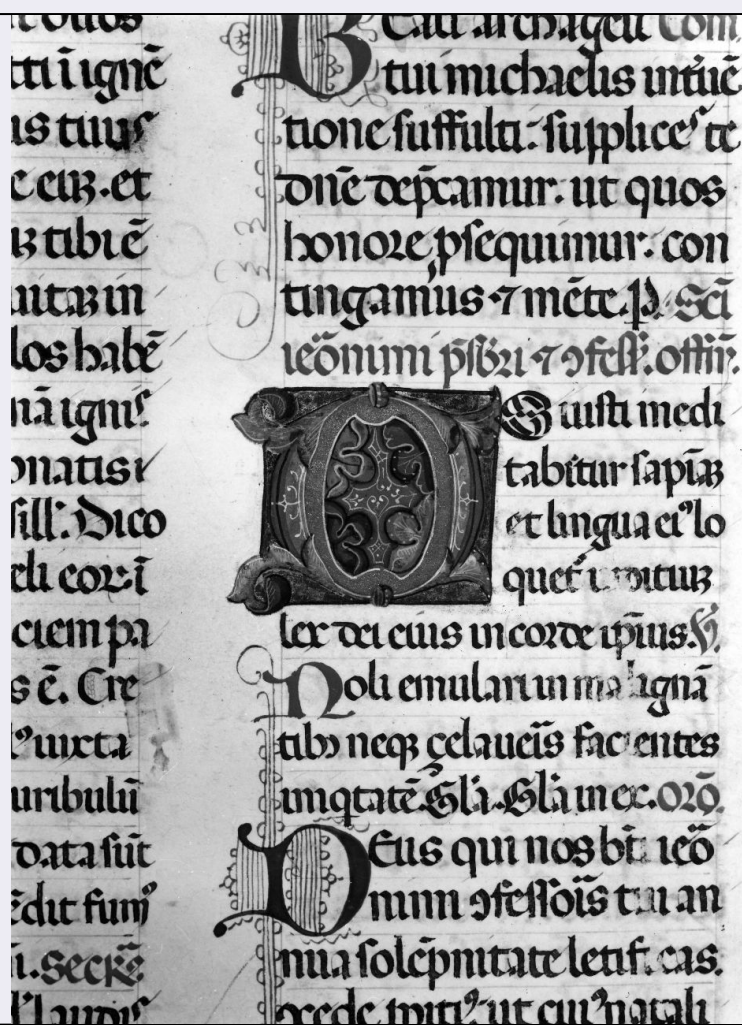 ttí ı̄ ignē
us tuus
e eiꝰ. et
tibi ē
los habē
nā igni
onatis i
sill'. Dico
eli cori
ciem pa
s ē. Cre
iuxta
uribulū
data sūt
secre
Beati archageli com
tui michaelis intūē
tione suffulti: supplices te
dn̄e dep̄camur. ut quos
honore ꝑsequimur. con
tingamus ⁊ mēte. P. Sc̄i
ieōnimi p̄sbri ⁊ ꝯfess. offm̄.
OS iusti medi
tabitur sapīaꝫ
et lingua eiꝰ lo
quet iuditiuꝫ
lex dei eius in corde ip̄ius. V.
Noli emulari in malignā
tibꝫ neqꝫ çelaueis̄ facientes
iniqtatē. Gl'a. Gl'a in ex. orō.
Deus qui nos bt̄i ieō
nimi ꝯfessoīs tui an
nua solēpnitate letificas.
ut eiꝰ natali